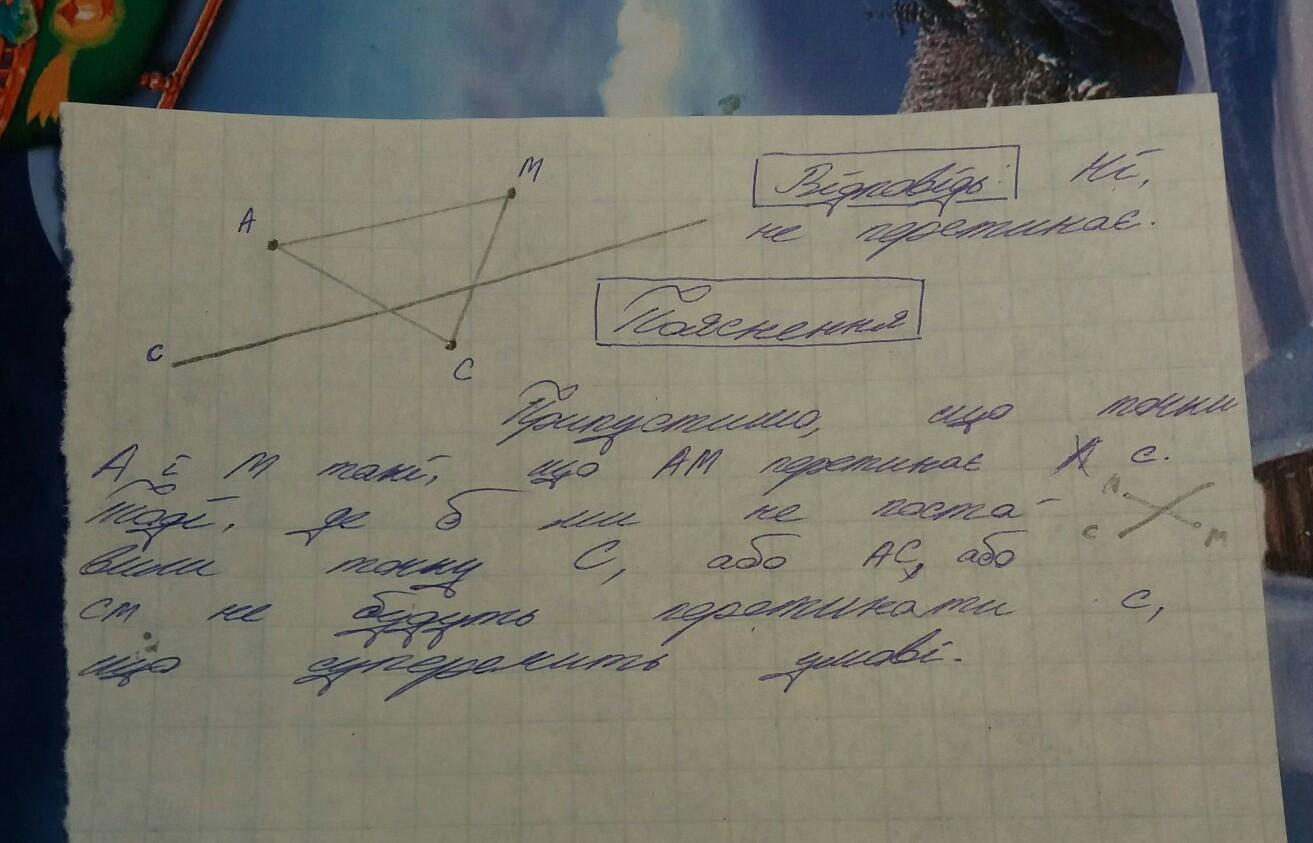 M
A
Відповідь: Ні,
не перетинає.
Пояснення
c
C
Припустимо, що точки
А і М такі, що АМ перетинає с.
Тоді, де б ми не поста-
вили точку С, або АС, або
СМ не будуть перетинати с,
що суперечить умові.
A
c
M